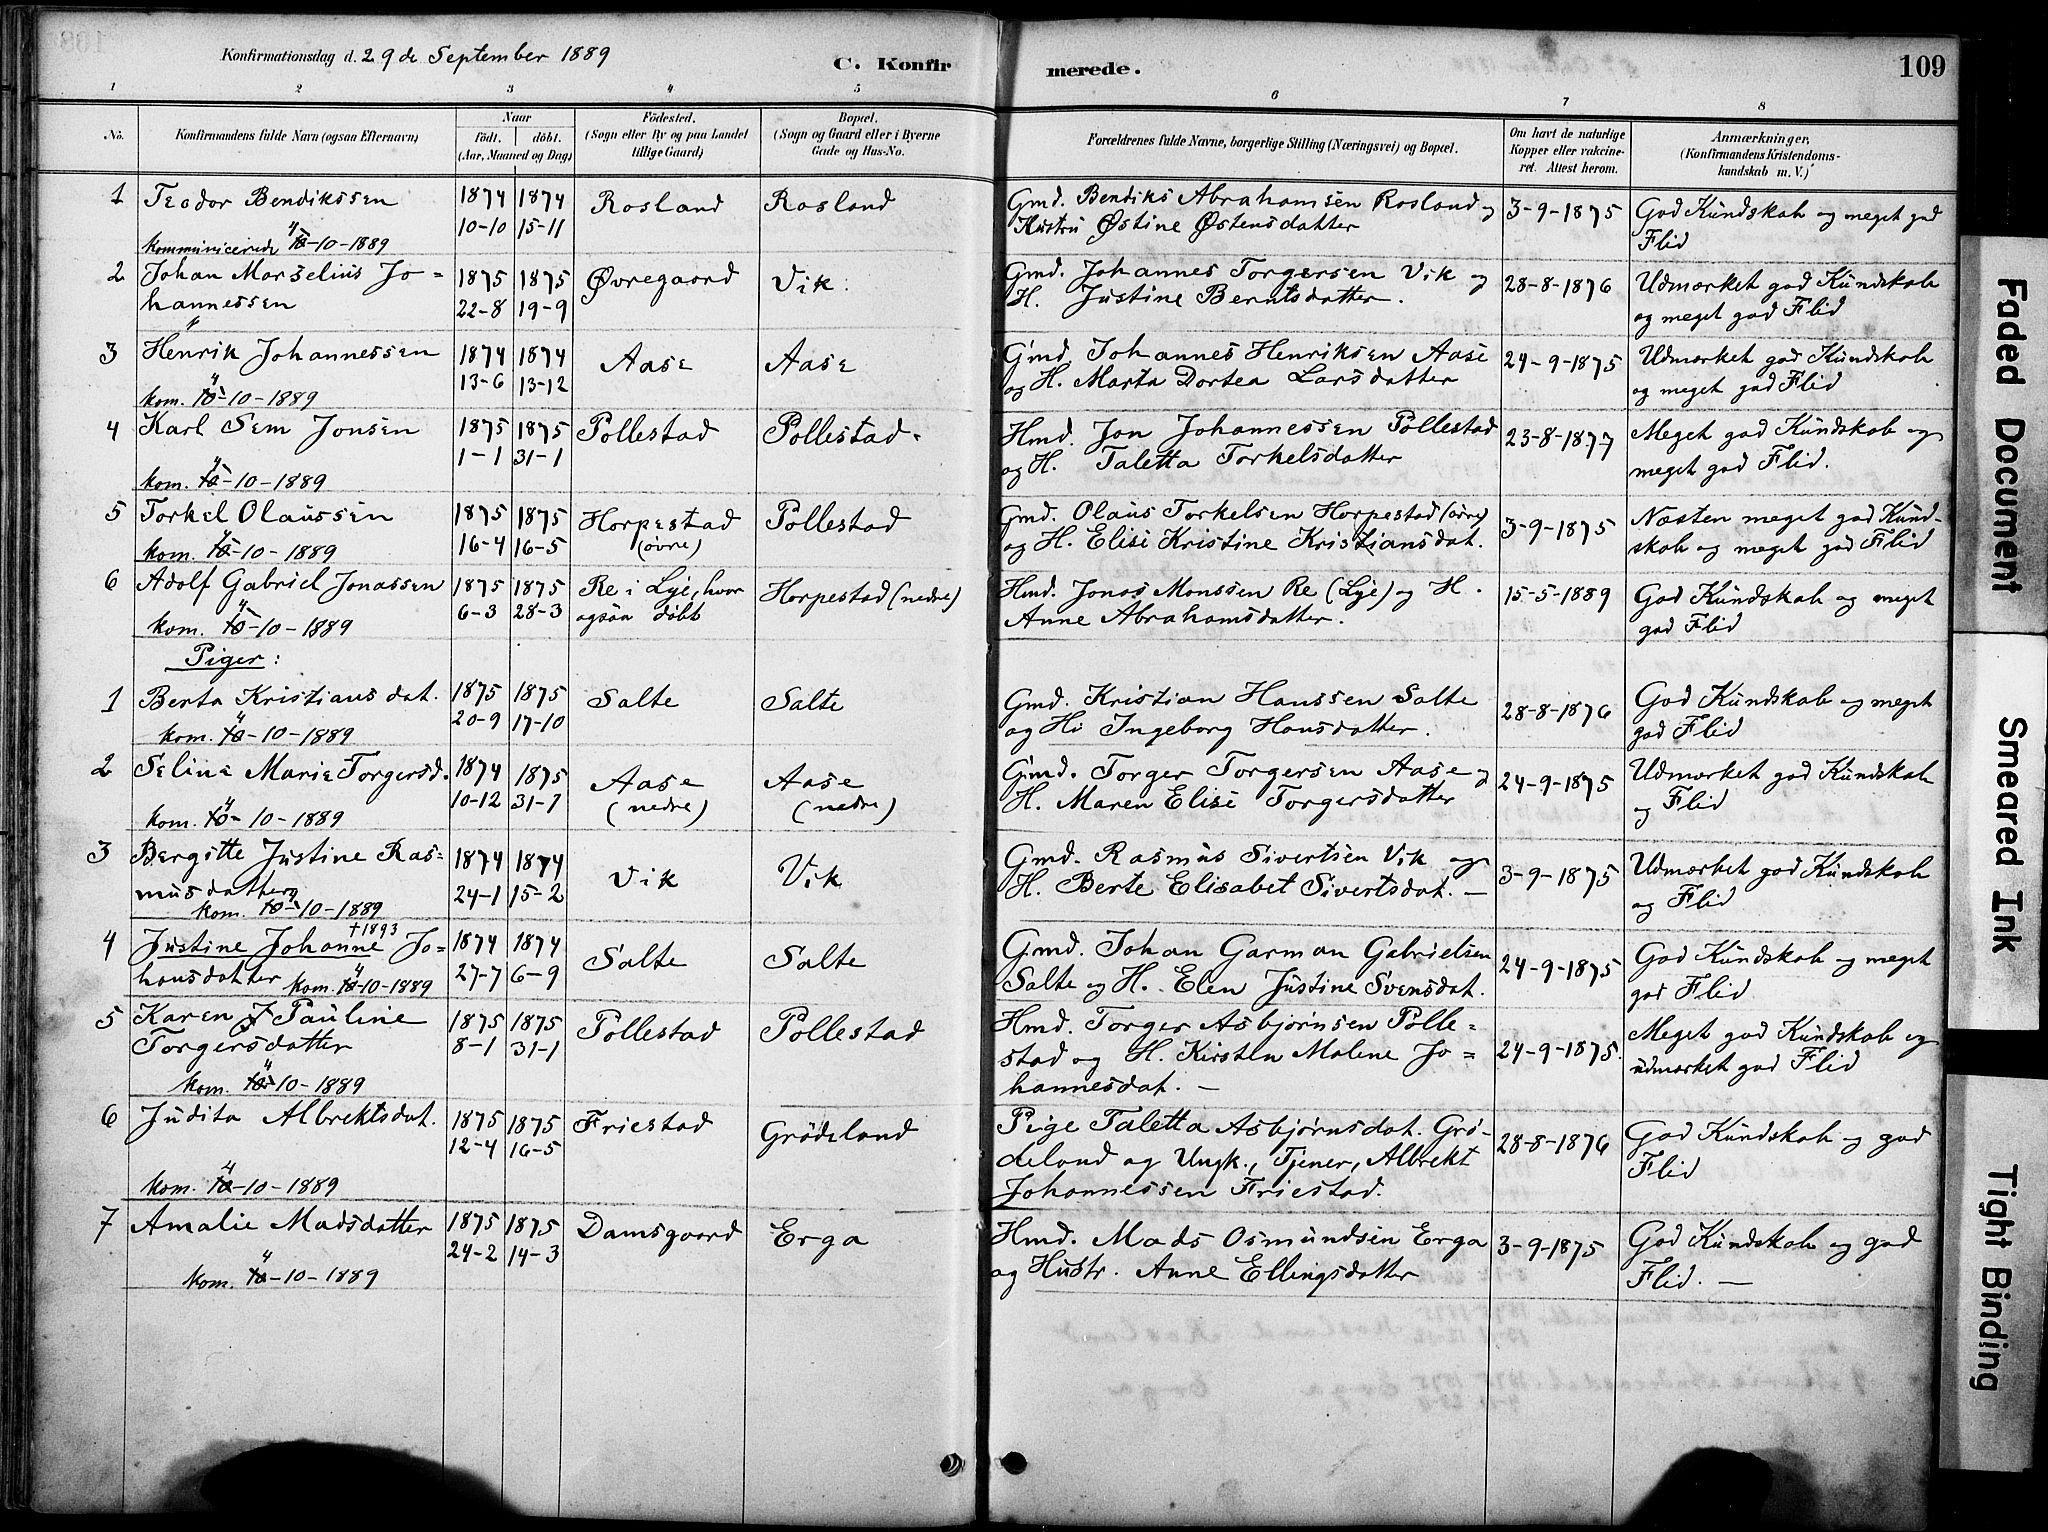 Konfirmationsdag d. 29de September 1889
C. Konfir
merede.
109
1 2 3 4 5 6 7 8
No.
Konfirmandens fulde Navn (ogsaa Efternavn)
Naar
født. døbt.
(Aar, Maaned og Dag)
Fødested.
(Sogn eller By og paa Landet
tillige Gaard)
Bopæl.
(Sogn og Gaard eller i Byerne
Gade og Hus-No.
Forældrenes fulde Navne, borgerlige Stilling (Næringsvei) og Bopæl.
Om havt de naturlige
Kopper eller vakcine-
ret. Attest herom.
Anmærkninger,
(Konfirmandens Kristendoms-
kundskab m. V.)
1 Teodor Bendikssen 1874 1874 Rosland Rosland Gmd. Bendiks Abrahamsen Rosland og 3-9-1875 God Kundskab og meget god
10-10 15-11 Hustru Østine Østensdatter Flid
kommunicerede 4-10-1889
2 Johan Marselius Jo= 1875 1875 Øvregaard Vik. Gmd. Johannes Torgersen Vik og 28-8-1876 Udmærket god Kundskab
hannessen 22-8 19-9 H. Justine Berntsdatter. og meget god Flid
3 Henrik Johannessen 1874 1874 Aase Aase Gmd. Johannes Henriksen Aase 24-9-1875 Udmærket god Kundskab
13-6 13-12 og H. Marta Dortea Larsdatter og meget god Flid
kom. 4-10-1889
4 Karl Sem Jonsen 1875 1875 Pollestad Pollestad. Hmd. Jon Johannessen Pollestad 23-8-1877 Meget god Kundskab og
1-1 31-1 og H. Taletta Torkelsdatter meget god Flid.
kom. 4-10-1889
5 Torkel Olaussen 1875 1875 Horpestad Pollestad Gmd. Olaus Torkelsen Horpestad (øvre) 3-9-1875 Næsten meget god Kund-
kom. 4-10-1889 16-4 16-5 (øvre) og H. Elise Kristine Kristiansdat. skab og meget god Flid
6 Adolf Gabriel Jonassen 1875 1875 Re i Lye, hvor Horpestad (nedre) Hmd. Jonas Monssen Re (Lye) og H. 15-5-1889 God Kundskab og meget
kom. 4-10-1889 6-3 28-3 ogsaa døbt Anne Abrahamsdatter. god Flid
Piger:
1 Berta Kristiansdat. 1875 1875 Salte Salte Gmd. Kristian Hanssen Salte 28-8-1876 God Kundskab og meget
kom. 4-10-1889 20-9 17-10 og H. Ingeborg Hansdatter. god Flid
2 Seline Marie Torgersd. 1874 1875 Aase Aase Gmd. Torger Torgersen Aase og 24-9-1875 Udmærket god Kundskab
kom. 4-10-1889 10-12 31-1 (nedre) (nedre) H. Maren Elise Torgersdatter og Flid
3 Bergitte Justine Ras= 1874 1874 Vik Vik Gmd. Rasmus Sivertsen Vik og 3-9-1875 Udmærket god Kundskab
musdatter 24-1 15-2 H. Berte Elisabet Sivertsdat. — og Flid
kom. 4-10-1889
†1893
4 Justine Johanne Jo= 1874 1874 Salte Salte Gmd. Johan Garman Gabrielsen 24-9-1875 God Kundskab og meget
hansdatter kom. 4-10-1889 27-7 6-9 Salte og H. Elen Justine Svensdat. god Flid
5 Karen Pauline 1875 1875 Pollestad Pollestad Hmd. Torger Asbjørnsen Polle= 24-9-1875. Meget god Kundskab og
Torgersdatter 8-1 31-1 stad og H. Kirsten Malene Jo= udmærket god Flid
kom. 4-10-1889 hannesdat. —
6 Judita Albrektsdat. 1875 1875 Friestad Grødeland Pige Taletta Asbjørnsdat. Grø- 28-8-1876 God Kundskab og god
12-4 16-5 deland og Ungk., Tjener, Albrekt Flid
kom. 4-10-1889 Johannessen Friestad.
7 Amalie Madsdatter 1875 1875 Damsgaard Erga Hmd. Mads Osmundsen Erga 3-9-1875 God Kundskab og god
24-2 14-3 og Hustr. Anne Ellingsdatter Flid. —
kom. 4-10-1889
Faded Document
Smeared Ink
Tight Binding